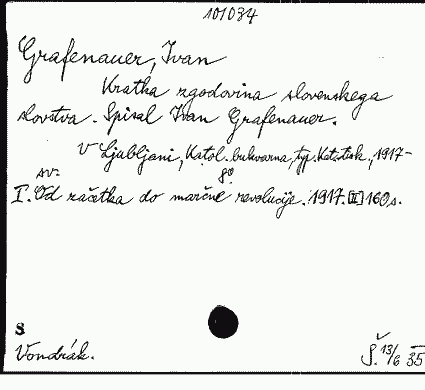 101034
Grafenauer, Ivan
Kratka zgodovina slovenskega
slovstva. Spisal Ivan Grafenauer.
V Ljubljani, Katol. bukvarna, typ. Kat. tisk., 1917-
sv. 8º
I. Od začetka do marčne revolucije. 1917. [II] 160 s.
8
Vondrák.
Š. 13/6 35